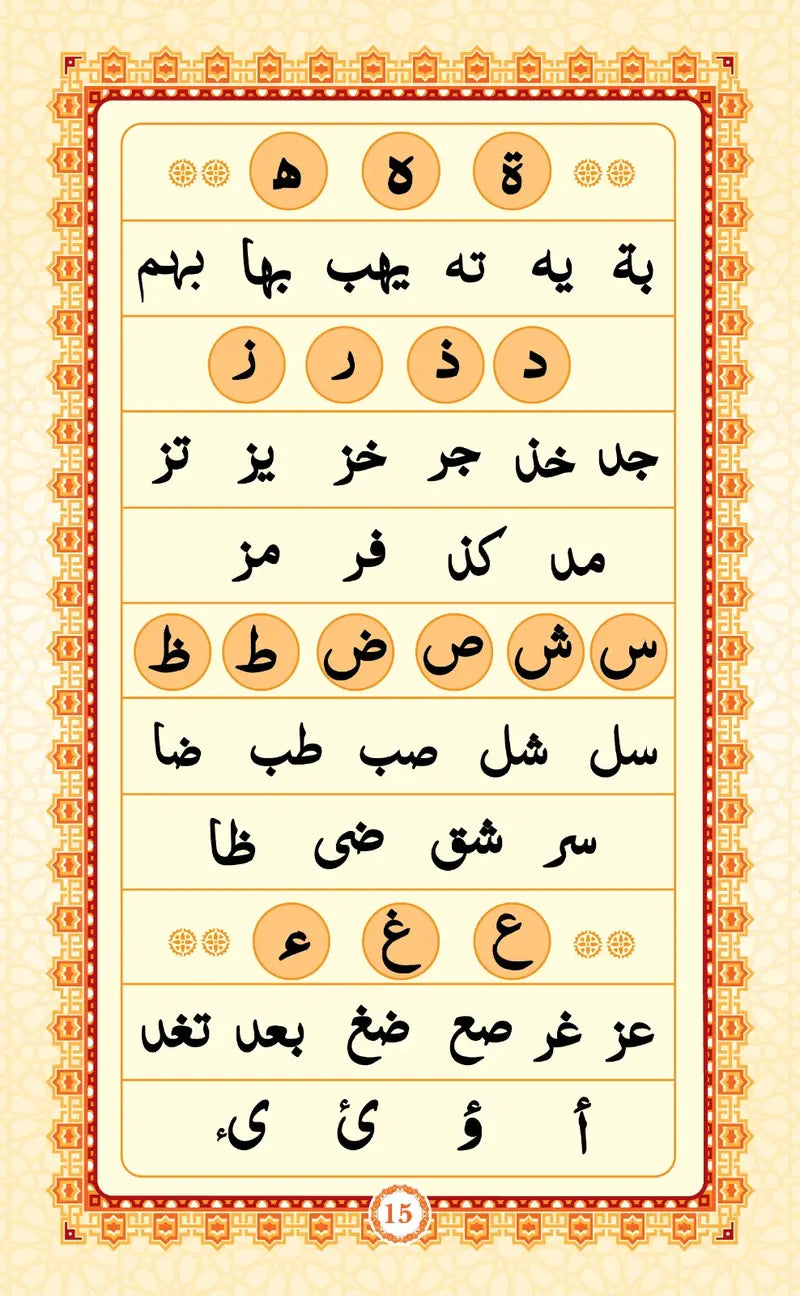 ة ه ه
بة يه ته يهب بها بهم
د ذ ر ز
جد خذ جر خز يز تز
مد كذ فر مز
س ش ص ض ط ظ
سل شل صب طب ضا
سر شق ضى ظا
ع غ ء
عز غر صع ضغ بعد تغد
أ ؤ ئ ىء
15